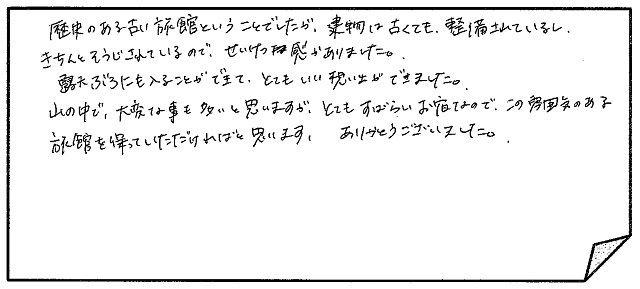 歴史のある古い旅館ということでしたが、建物は古くても、整備されているし、
きちんとそうじされているので、せいけつ感がありました。
露天ぶろにも入ることができて、とてもいい思い出ができました。
山の中で、大変な事も多いと思いますが、とてもすばらしいお宿なので、この雰囲気のある
旅館を保っていただければと思います。 ありがとうございました。